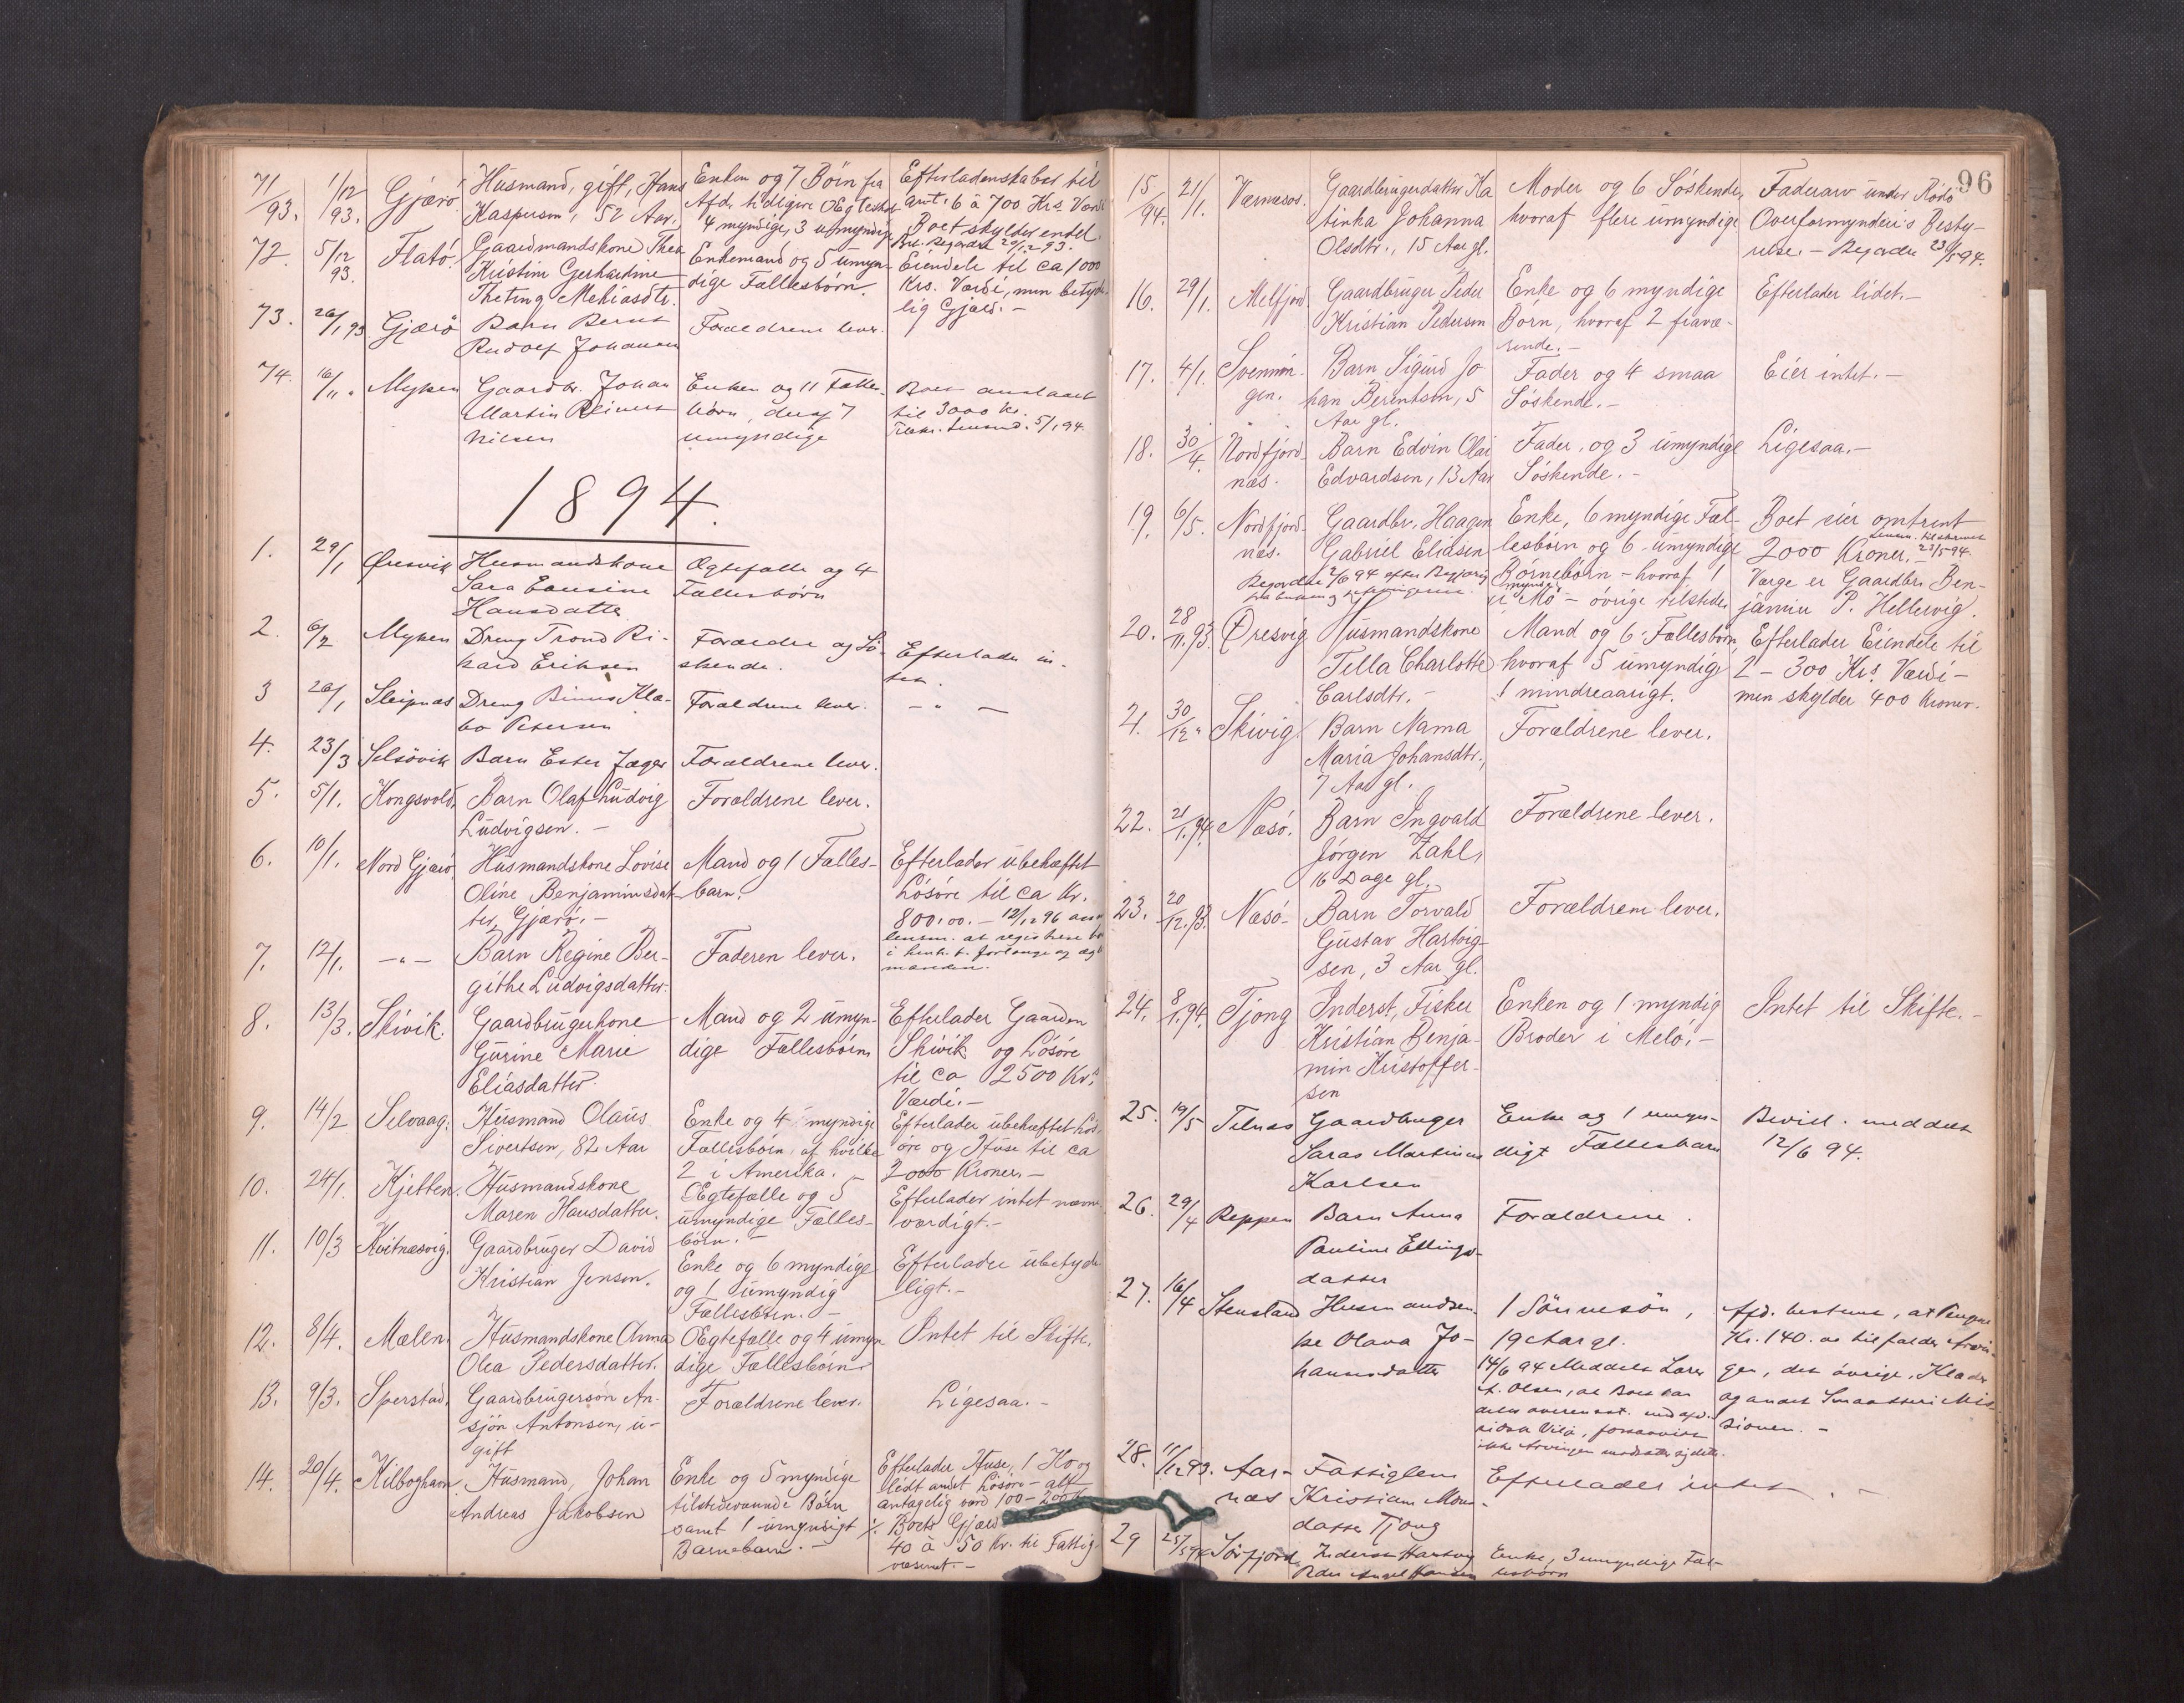 71/93. 1/12 93. Gjærö Husmand, gift, Hans Enken og 7 Börn fra Efterladenskaber til
Kaspersen, 52 Aar. Afds. tidligere Ægteskab
4 myndige, 3 umyndige Boet skylder endel.
72. 5/12 93. Flatö. Gaardmandskone Thea Enkemand og 5 umyn- Eiendele til ca 1000
Kristine Gerhardine dige Fællesbörn. Krs. Værdi, men betyde-
Theting Mekiasdtr. lig Gjæld. –
73. 26/1 93 Gjærö Barn Bernt Forældrene lever.
Rudolf Johansen
74. 16/11 " Myken Gaardbr. Johan Enken og 11 Fælles- Boet anslaaet
Martin Reinert börn, deraf 7 til 3000 Kr.
Nilsen umyndige 5/1 94.
1894.
1. 29/1 Øresvik Husmandskone Ægtefælle og 4
Sara Fællesbörn
Hansdatter
2. 6/2 Myken Dreng Trond Ri- Forældre og Sö- Efterlader in-
kard Eriksen skende. tet.
3 26/1 Sleipnæs Dreng Forældrene lever. – " –
Petersen
4. 23/3 Selsövik Barn Ester Jæger Forældrene lever.
5. 5/1. Kongsvold. Barn Olaf Ludvig Forældrene lever.
Ludvigsen. –
6. 10/1. Nord Gjærö. Husmandskone Lovise Mand og 1 Fælles- Efterlader ubehæftet
Oline Benjaminsdat- barn. Lösöre til ca Kr.
ter, Gjærö. – 800.00. – 12/12 96
7. 12/1. – " – Barn Regine Ber- Faderen lever.
githe Ludvigsdatter.
8. 13/3. Skivik. Gaardbrugerkone Mand og 2 umyn- Efterlader Gaarden
Gurine Marie dige Fællesbörn Skivik og Lösöre
Eliasdatter. til ca 2500 Krs.
Værdi. –
9. 14/2 Selvaag. Husmand Olaus Enke og 4 myndige Efterlader ubehæftet Lös-
Sivertsen, 82 Aar Fællesbörn, af hvilke öre og Huse til ca
2 i Amerika. – 2000 Kroner. –
10. 24/1. Kjetten. Husmandskone Ægtefælle og 5 Efterlader intet nævne-
Maren Hansdatter. umyndige Fælles- værdigt. –
börn. –
11. 10/3 Kvitnæsvig. Gaardbruger David Enke og 6 myndige Efterlader ubetyde-
Kristian Jensen. og 1 umyndig ligt. –
Fællesbörn. –
12. 8/4. Mælen. Husmandskone Anna Ægtefælle og 4 umyn- Intet til Skifte.
Olea Pedersdatter. dige Fællesbörn.
13. 9/3. Sperstad. Gaardbrugersön An- Forældrene lever. Ligesaa. –
sjön Antonsen, u-
gift
14. 20/4. Kilboghavn. Husmand, Johan Enke og 5 myndige Efterlader Huse, 1 Ko og
Andreas Jakobsen tilstedeværende Börn lidt andet Lösöre – alt
samt 1 umyndigt antagelig værd 100 – 200 Kr.
Barnebarn. – ./. Boets Gjæld
40 à 50 Kr. til Fattig-
væsenet. –
96
15/94. 21/1. Værnæsos. Gaardbrugerdatter Ka Moder og 6 Söskende, Faderarv under Rödö
tinka Johanna hvoraf flere umyndige Overformynderi's Besty-
Olsdtr., 15 Aar gl. relse. – 23/5 94.
16. 29/1. Melfjord. Gaardbruger Peder Enke og 6 myndige Efterlader lidet. –
Kristian Pedersen Börn, hvoraf 2 fravæ-
rende. –
17. 4/1. Svennin- Barn Sigurd Jo Fader og 4 smaa Eier intet. –
gen. han Berentsen, 5 Söskende. –
Aar gl.
18. 30/4. Nordfjord- Barn Edvin Olai Fader, og 3 umyndige Ligesaa. –
næs. Edvardsen, 13 Aar Söskende. –
19. 6/5. Nordfjord- Gaardbr. Haagen Enke, 6 myndige Fæl- Boet eier omtrent
næs. Gabriel Eliasen lesbörn og 6 umyndige 2000 Kroner. – 23/5 94.
2/6 94 efter Begjæring Börnebörn – hvoraf 1 Værge er Gaardbr. Ben-
i Mo – övrige tilstede jamin P. Hellervig.
20. 28/11. 93. Öresvig Husmandskone Mand og 6 Fællesbörn, Efterlader Eiendele til
Tella Charlotte hvoraf 5 umyndige 2 – 300 Krs. Værdi –
Carlsdtr. – 1 mindreaarigt. men skylder 400 Kroner.
21. 30/12 " Skivig. Barn Nama Forældrene lever.
Maria Johansdtr.,
7 Aar gl.
22. 21/1. 94. Næsö. Barn Ingvald Forældrene lever.
Jörgen Zahl,
16 Dage gl.
23. 20/12. 93. Næsö – Barn Torvald Forældrene lever.
Gustav Hartvig-
sen, 3 Aar gl.
24. 8/1. 94. Tjong Inderst, Fisker Enken og 1 myndig Intet til Skifte. –
Kristian Benja- Broder i Melö. –
min Kristoffer-
sen
25. 19/5 Telnæs Gaardbruger Enke og 1 umyn- Bevill. meddelt
Saras Martinus digt Fællesbarn 12/6 94.
Karlsen
26. 29/4 Reppen Barn Anna Forældrene.
Pauline Ellings-
datter
27. 16/4 Stensland Husmandsen- 1 Sönnesön, Afd. bestemt, at Penge
ke Olava Jo- 19 Aar gl. Kr. 140.00 tilfalder Arvin-
hannesdatter 14/6 94 Meddelt Lars gen, det övrige, Klæder
Olsen, at Boet kan og andet Smaatteri Mis-
sionen. –
28. 11/12 93. Aar- Fattiglem Efterlader intet. –
næs Kristiane Mons-
datter Tjong
29 25/5 94 Sörfjord Inderst Hartvig Enke, 3 umyndige Fæl-
Hansen lesbörn